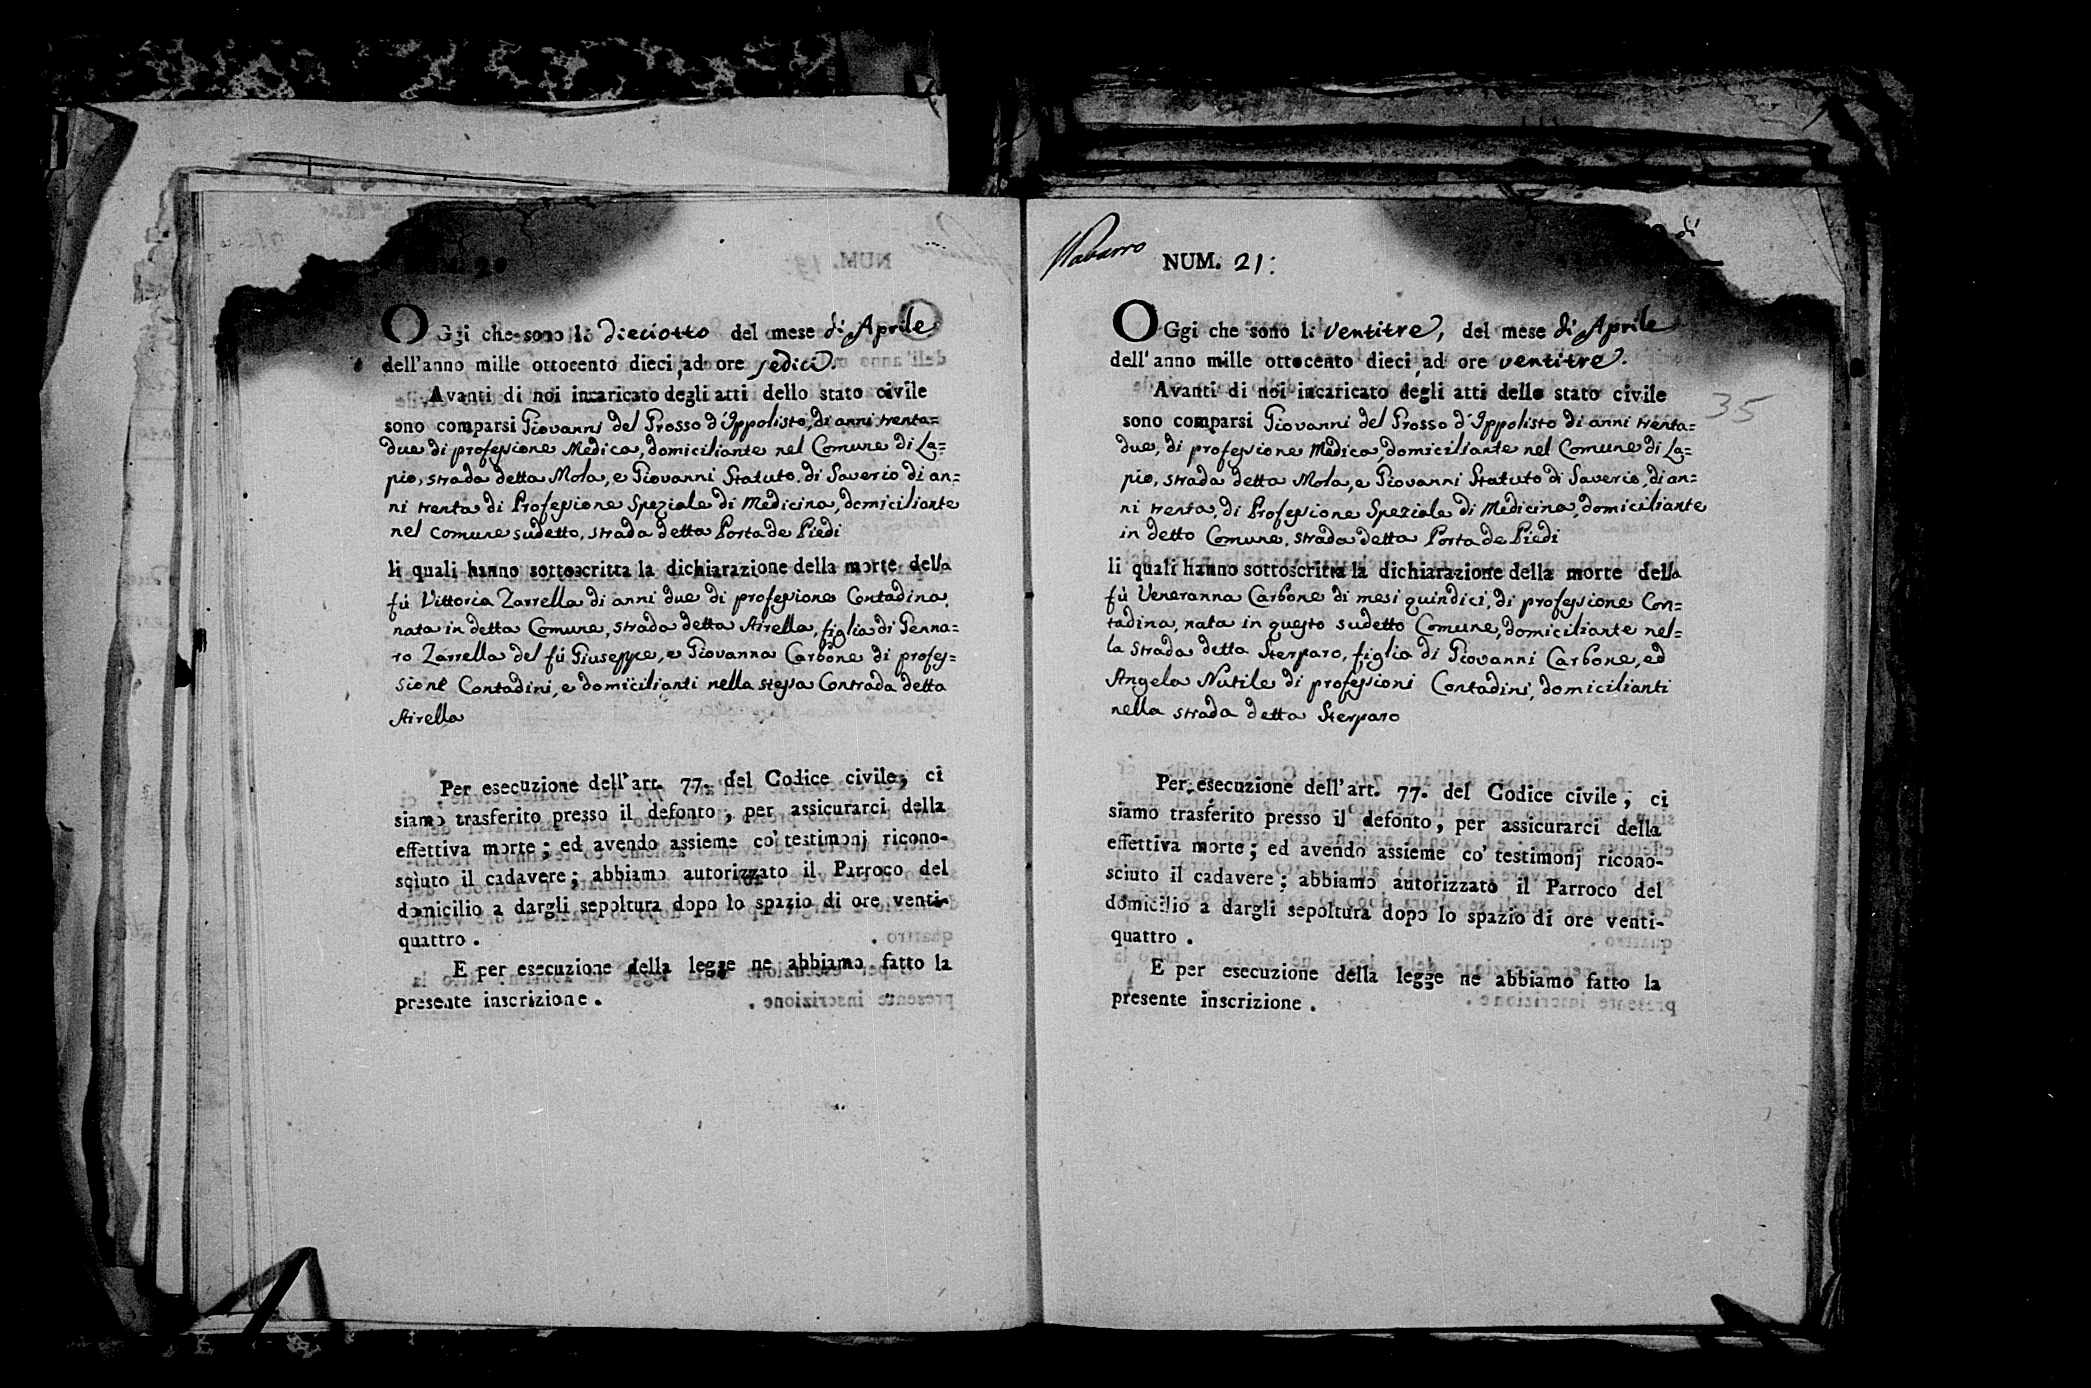 NUM. 20
OGgi che sono li dieciotto del mese di Aprile
dell'anno mille ottocento dieci, ad ore sedici.
Avanti di noi incaricato degli atti dello stato civile
sono comparsi Giovanni del Grosso d'Ippolisto, di anni trenta=
due di professione Medica, domiciliante nel Comune di La=
pio, strada detta Mola, e Giovanni Statuto di Saverio di an=
ni trenta di Professione Speziale di Medicina, domiciliante
nel Comune sudetto, strada detta Porta de Piedi
li quali hanno sottoscritta la dichiarazione della morte della
fù Vittoria Zarrella di anni due di professione Contadina,
nata in detta Comune, strada detta Airella, figlia di Genna=
ro Zarrella del fù Giuseppe, e Giovanna Carbone di profes=
sione Contadini, e domicilianti nella stessa Contrada detta
Airella
Per esecuzione dell'art. 77. del Codice civile, ci
siamo trasferito presso il defonto, per assicurarci della
effettiva morte; ed avendo assieme co' testimonj ricono-
sciuto il cadavere; abbiamo autorizzato il Parroco del
domicilio a dargli sepoltura dopo lo spazio di ore venti-
quattro.
E per esecuzione della legge ne abbiamo fatto la
presente inscrizione.
Navarro
di
NUM. 21:
OGgi che sono li ventitre, del mese di Aprile
dell'anno mille ottocento dieci, ad ore ventitre.
Avanti di noi incaricato degli atti dello stato civile
35
sono comparsi Giovanni del Grosso d'Ippolisto di anni trenta=
due, di professione Medica, domiciliante nel Comune di La=
pio, strada detta Mola, e Giovanni Statuto di Saverio, di an=
ni trenta, di Professione Speziale di Medicina, domiciliante
in detto Comune, strada detta Porta de Piedi
li quali hanno sottoscritta la dichiarazione della morte della
fù Veneranna Carbone di mesi quindici, di professione Con=
tadina, nata in questo sudetto Comune, domiciliante nel=
la strada detta Sterparo, figlia di Giovanni Carbone, ed
Angela Nutile di professioni Contadini, domicilianti
nella strada detta Sterparo
Per esecuzione dell'art. 77. del Codice civile, ci
siamo trasferito presso il defonto, per assicurarci della
effettiva morte; ed avendo assieme co' testimonj ricono-
sciuto il cadavere; abbiamo autorizzato il Parroco del
domicilio a dargli sepoltura dopo lo spazio di ore venti-
quattro.
E per esecuzione della legge ne abbiamo fatto la
presente inscrizione.